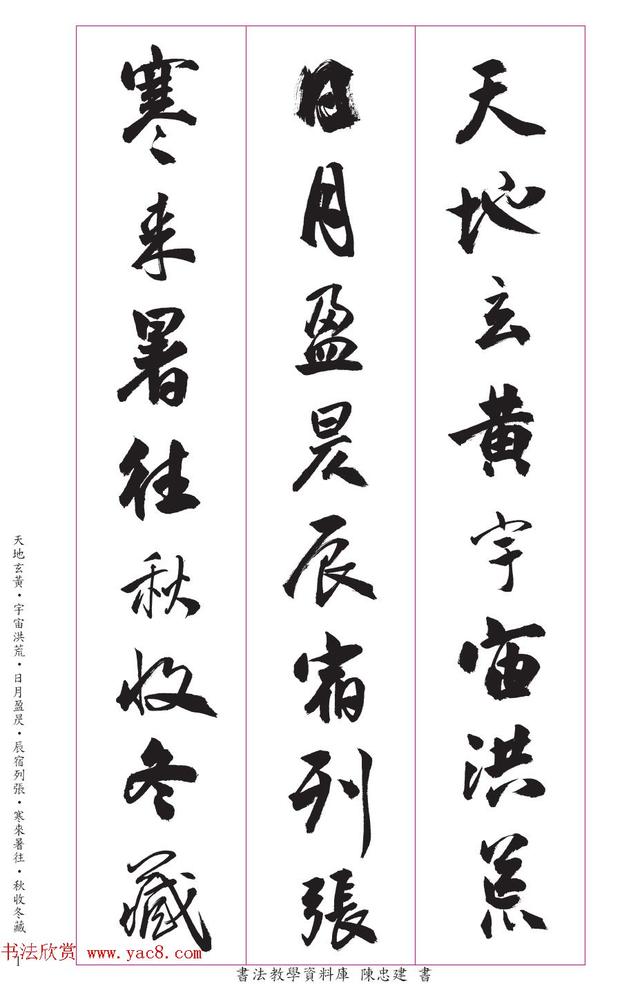 天地玄黃宇宙洪荒
日月盈昃辰宿列張
寒来暑往秋收冬藏
天地玄黃・宇宙洪荒・日月盈昃・辰宿列張・寒來暑往・秋收冬藏
1
书法欣赏 www.yac8.com
書法教學資料庫 陳忠建 書